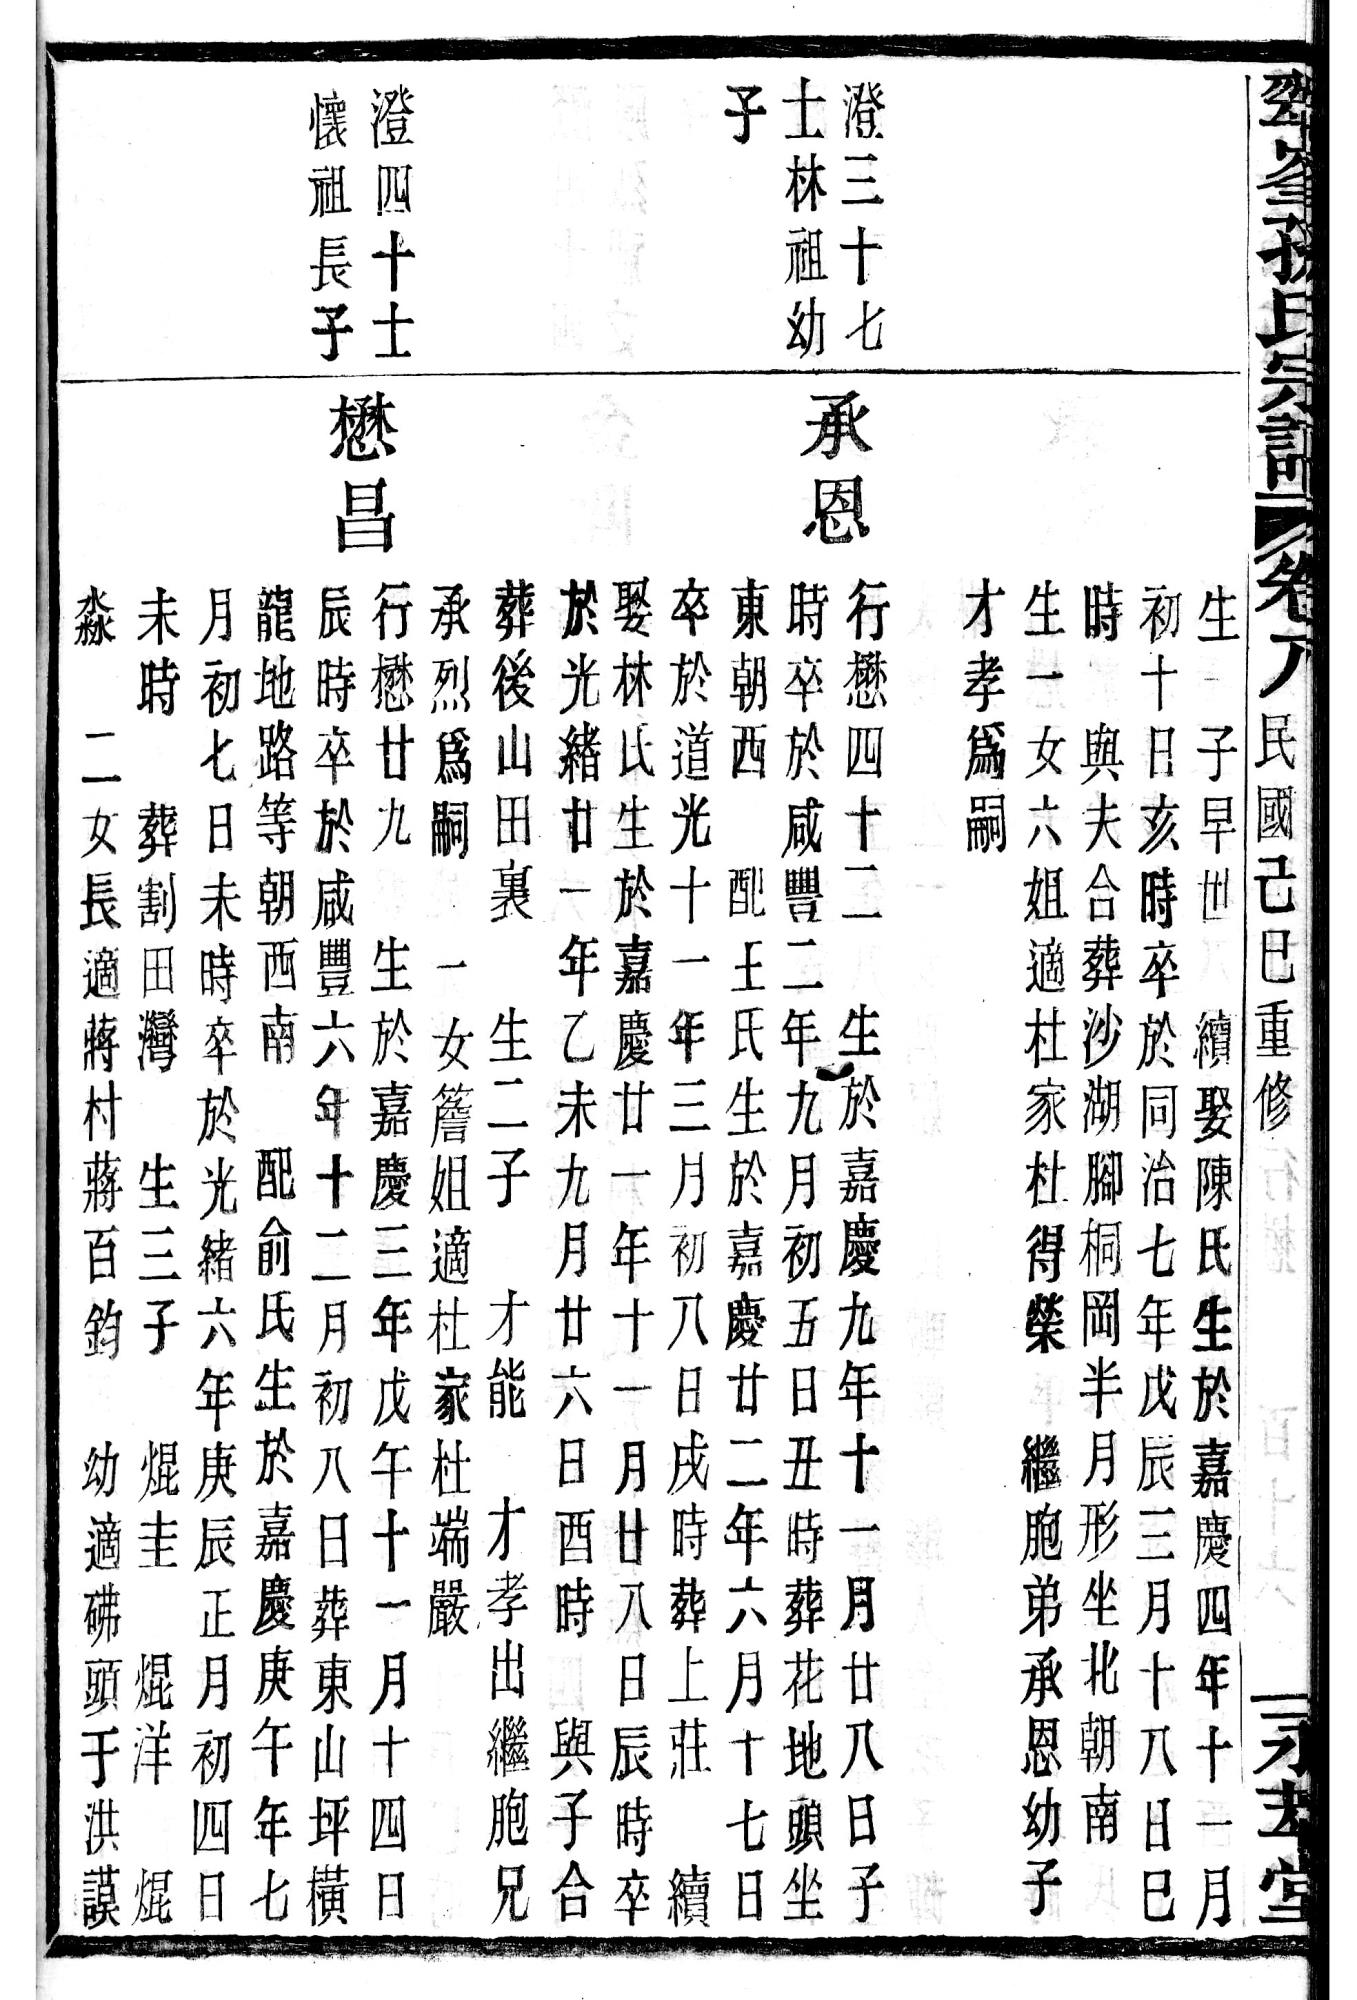 孫氏宗譜 卷八 民國己巳重修
生一子早世 續娶陳氏生於嘉慶四年十一月
初十日亥時卒於同治七年戊辰三月十八日巳
時 與夫合葬沙湖腳桐岡半月形坐北朝南
生一女六姐適杜家杜得榮 繼胞弟承恩幼子
才孝為嗣
澄三十七
士林祖幼
子
承恩
行懋四十二 生於嘉慶九年十一月廿八日子
時卒於咸豐二年九月初五日丑時葬花地頭坐
東朝西 配王氏生於嘉慶廿二年六月十七日
卒於道光十一年三月初八日戌時葬上莊 續
娶林氏生於嘉慶廿一年十一月廿八日辰時卒
於光緒廿一年乙未九月廿六日酉時 與子合
葬後山田裏 生二子 才能 才孝出繼胞兄
承烈爲嗣 一女簷姐適杜家杜端嚴
澄四十士
懷祖長子
懋昌
行懋廿九 生於嘉慶三年戊午十一月十四日
辰時卒於咸豐六年十二月初八日葬東山坪橫
龍地路等朝西南 配俞氏生於嘉慶庚午年七
月初七日未時卒於光緒六年庚辰正月初四日
未時 葬割田灣 生三子 焜圭 焜洋 焜
淼 二女長適蔣村蔣百鈞 幼適砩頭于洪謨